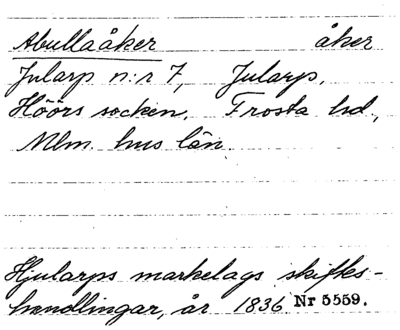 Abullaåker åker
Jularp n:r 7, Jularp,
Höörs socken, Frosta hd.,
Mlm. hus län.
Hjularps markelags skifks-
handlingar, år 1836 Nr 5559.